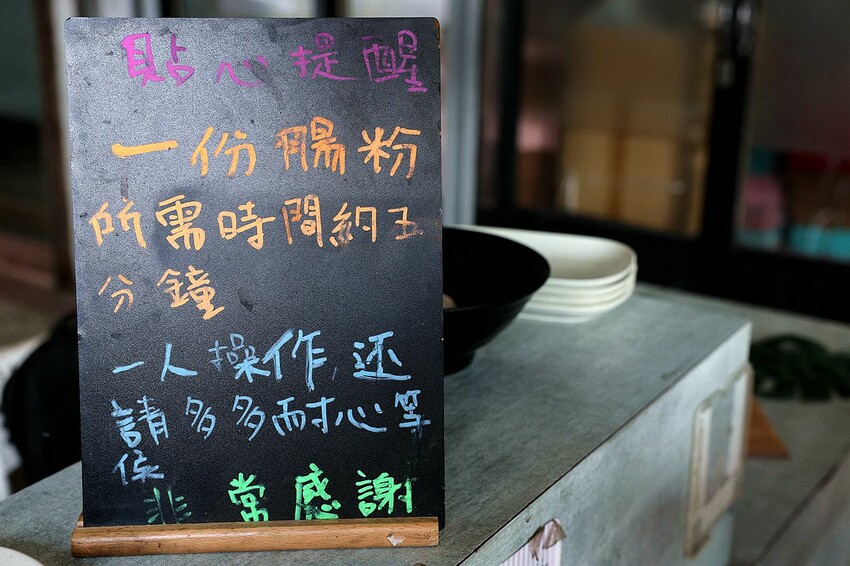 貼心提醒
一份腸粉
所需時間約五
分鐘
一人操作,还
請多多耐心等
候
非常感謝